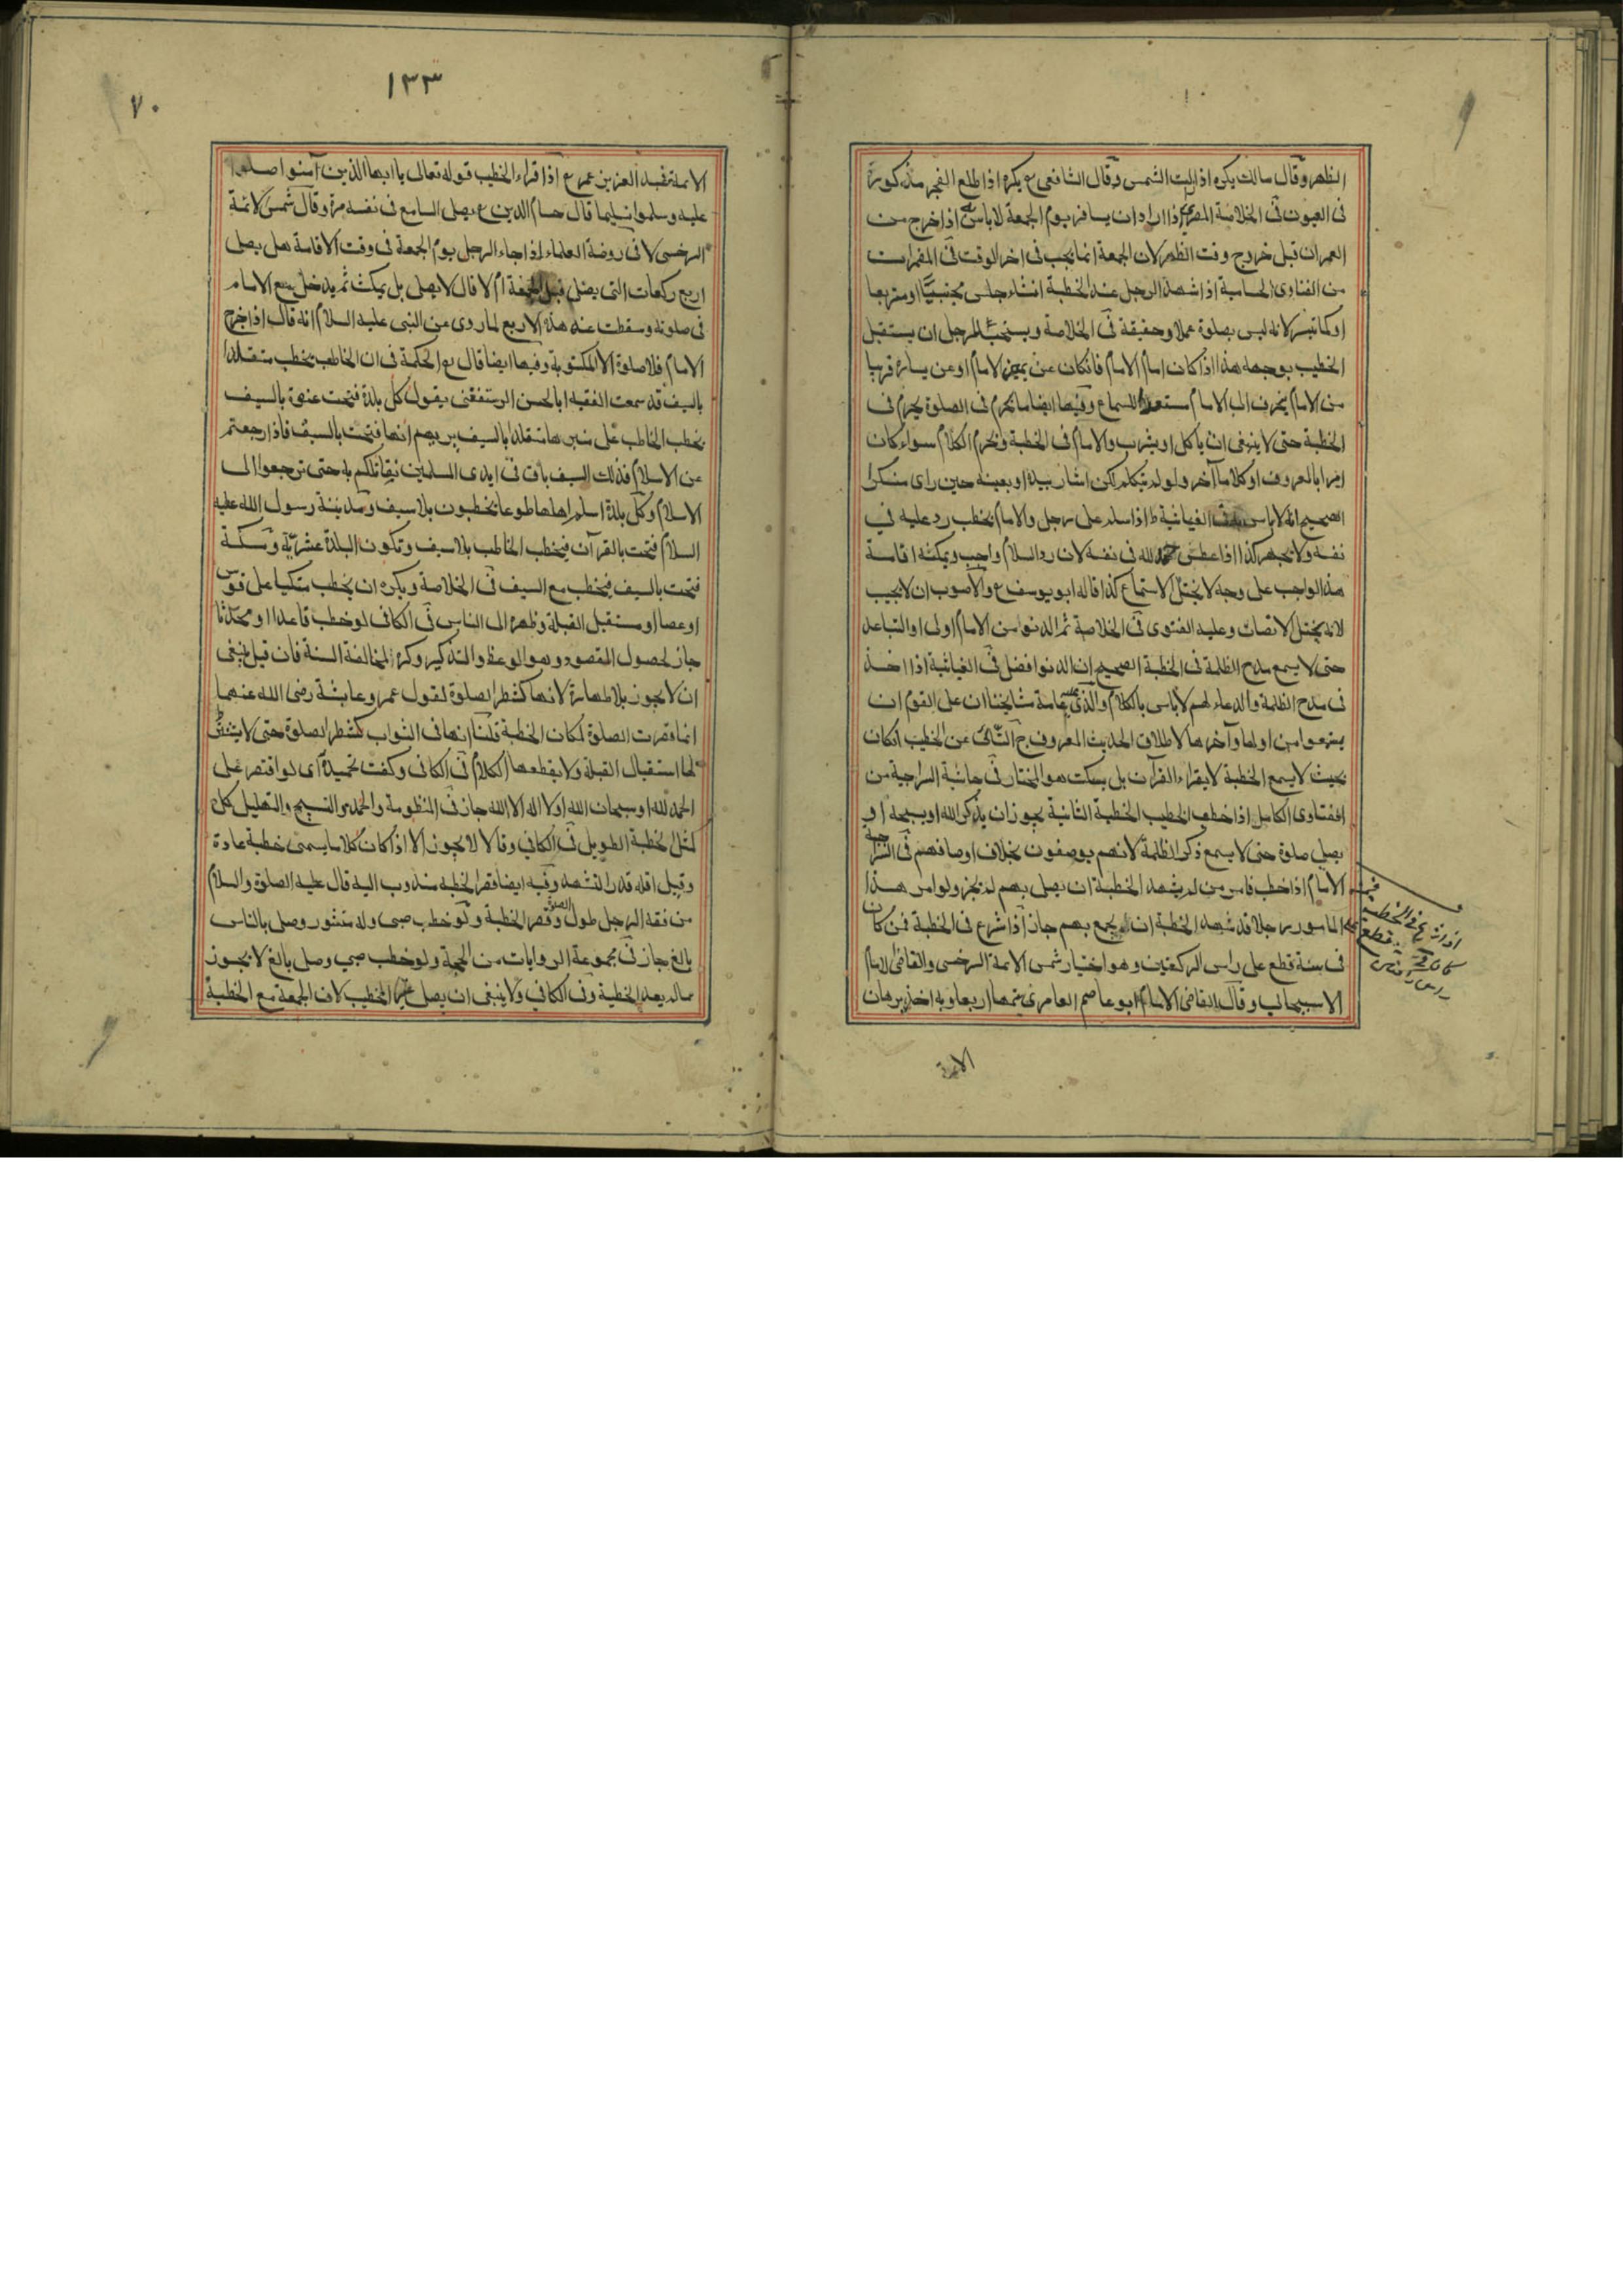 الظهر وقال مالك يكره اذا زالت الشمس وقال الشافعى رح يكره اذا طلع الفجر مذكورة
فى العيون فى الخلاصة المصرى اذا اراد ان يسافر يوم الجمعة لا باس به اذا خرج من
العمران قبل خروج وقت الظهر لان الجمعة انما يجب فى اخر الوقت فى المضمرات
من الفتاوى الحسامية اذا شهد الرجل عند الخطبة انشاء جلس محتبيا او متربعا
او كما تيسر لانه ليس بصلوة عملا وحقيقة فى الخلاصة ويستحب للرجل ان يستقبل
الخطيب بوجهه هذا اذا كان امام الامام فانكان عن يمين الامام او عن يساره قريبا
من الامام ينحرف الى الامام مستعدا للسماع وفيها ايضا ما يحرم فى الصلوة يحرم فى
الخطبة حتى لا ينبغى ان ياكل او يشرب والامام فى الخطبة ويحرم الكلام سواء كان
امرا بالمعروف او كلاما آخر ولو لم يتكلم لكن اشار بيده او بعينه حين راى منكرا
الصحيح انه لا باس به فى الغياثية ط اذا سلم على رجل والامام يخطب رد عليه فى
نفسه ولا يجهر كذا اذا عطس حمد الله فى نفسه لان رد السلام واجب ويمكنه اقامة
هذا الواجب على وجه لا يختل الاستماع كذا قاله ابو يوسف رح والاصوب ان لا يجيب
لانه يختل الانصات وعليه الفتوى فى الخلاصة ثم الدنو من الامام اولى او التباعد
حتى لا يسمع مدح الظلمة فى الخطبة الصحيح ان الدنو افضل فى الغياثية اذا اخذ
فى مدح الظلمة والدعاء لهم لا باس بالكلام والذى عليه عامة مشايخنا ان على القوم ان
يستمعوا من اولها وآخرها لاطلاق الحديث المعروف ج النائى عن الخطيب انكان
بحيث لا يسمع الخطبة لا يقراء القرآن بل يسكت هو المختار فى حاشية السراجية من
الفتاوى الكامل اذا خطب الخطيب الخطبة الثانية يجوز ان يذكر الله او يسبحه او
يصلى صلوة حتى لا يسمع ذكر الظلمة لانهم يوصفون بخلاف اوصافهم فى السراجية
الامام اذا خطب فامر من لم يشهد الخطبة ان يصلى بهم لم يجز ولو امر هذا
المامور رجلا قد شهد الخطبة ان يجمع بهم جاز اذا شرع فى الخطبة فمن كان
فى سنة قطع على راس الركعتين وهو اختيار شمس الايمة السرخسى والقاضى الامام
الاسبيجابى وقال القاضى الامام ابو عاصم العامرى يتمها اربعا وبه اخذ برهان
اذا شرع فى الخطبة
الايمة
١٣٣
٧٠
الايمة عبد العزيز بن عمر رح اذا قراء الخطيب قوله تعالى يا ايها الذين آمنوا صلوا
عليه وسلموا تسليما قال حسام الدين رح يصلى السامع فى نفسه مرة وقال شمس الائمة
السرخسى لا فى روضة العلماء اذا جاء الرجل يوم الجمعة فى وقت الاقامة هل يصلى
اربع ركعات التى يصلى قبل الجمعة ام لا قال لا يصلى بل يمكث ثم يدخل مع الامام
فى صلوته وسقطت عنه هذه الاربع لما روى عن النبى عليه السلام انه قال اذا خرج
الامام فلا صلوة الا المكتوبة وفيها ايضا قال رح الحكمة فى ان الخاطب يخطب متقلدا
بالسيف قد سمعت الفقيه ابا الحسن الرستغفنى يقول كل بلدة فتحت عنوة بالسيف
يخطب الخاطب على منبرها متقلدا بالسيف يريهم انها فتحت بالسيف فاذا رجعتم
عن الاسلام فذلك السيف باق فى ايدى المسلمين نقاتلكم به حتى ترجعوا الى
الاسلام وكل بلدة اسلم اهلها طوعا يخطبون بلا سيف ومدينة رسول الله عليه
السلام فتحت بالقرآن فيخطب الخاطب بلا سيف وتكون البلدة عشرية ومكة
فتحت بالسيف فيخطب مع السيف فى الخلاصة ويكره ان يخطب متكيا على قوس
او عصا او مستقبل القبلة وظهره الى الناس فى الكافى لو خطب قاعدا او محدثا
جاز لحصول المقصود وهو الوعظ والتذكير وكره لمخالفة السنة فان قيل ينبغى
ان لا يجوز بلا طهارة لانها كشطر الصلوة لقول عمر وعايشة رضى الله عنهما
انما قصرت الصلوة لمكان الخطبة قلنا انها فى الثواب كشطر الصلوة حتى لا يشترط
لها استقبال القبلة ولا يقطعها الكلام فى الكافى وكفت تحميدة اى لو اقتصر على
الحمد لله او سبحان الله او لا اله الا الله جاز فى المنظومة والحمد والتسبيح والتهليل كل
لمثل الخطبة الطويل فى الكافى وقالا لا يجوز الا اذا كان كلاما يسمى خطبة عادة
وقيل اقله قدر التشهد وفيه ايضا قصر الخطبة مندوب اليه قال عليه الصلوة والسلام
من فقه الرجل طول الصلوة وقصر الخطبة ولو خطب صبى وله منشور وصلى بالناس
بالغ جاز فى مجموعة الروايات من الحجة ولو خطب صبى وصلى بالغ لا يجوز
ماله يعيد الخطبة وفى الكافى ولا ينبغى ان يصلى غير الخطيب لان الجمعة مع الخطبة